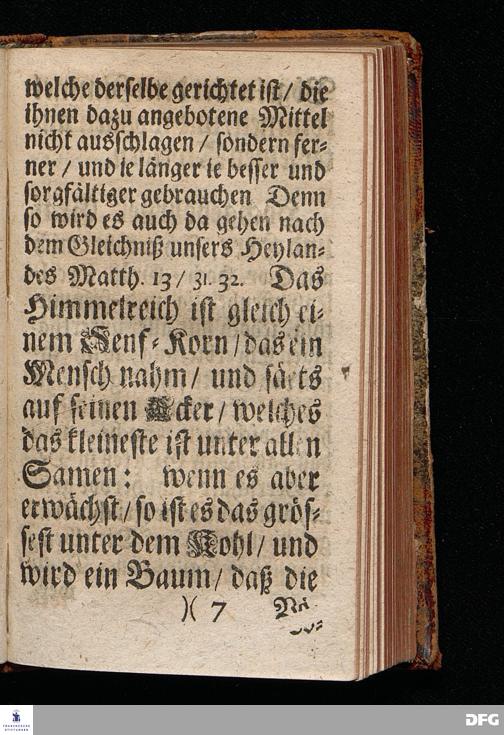 welche derselbe gerichtet ist / die
ihnen dazu angebotene Mittel
nicht ausschlagen / sondern fer-
ner / und ie länger ie besser und
sorgfältiger gebrauchen Denn
so wird es auch da gehen nach
dem Gleichniß unsers Heylan-
des Matth. 13 / 31. 32. Das
Himmelreich ist gleich ei-
nem Senf-Korn / das ein
Mensch nahm / und säets
auf seinen Acker / welches
das kleineste ist unter allen
Samen: wenn es aber
erwächst / so ist es das grös-
sest unter dem Kohl / und
wird ein Baum / daß die
)( 7
FRANCKESCHE
STIFTUNGEN
DFG